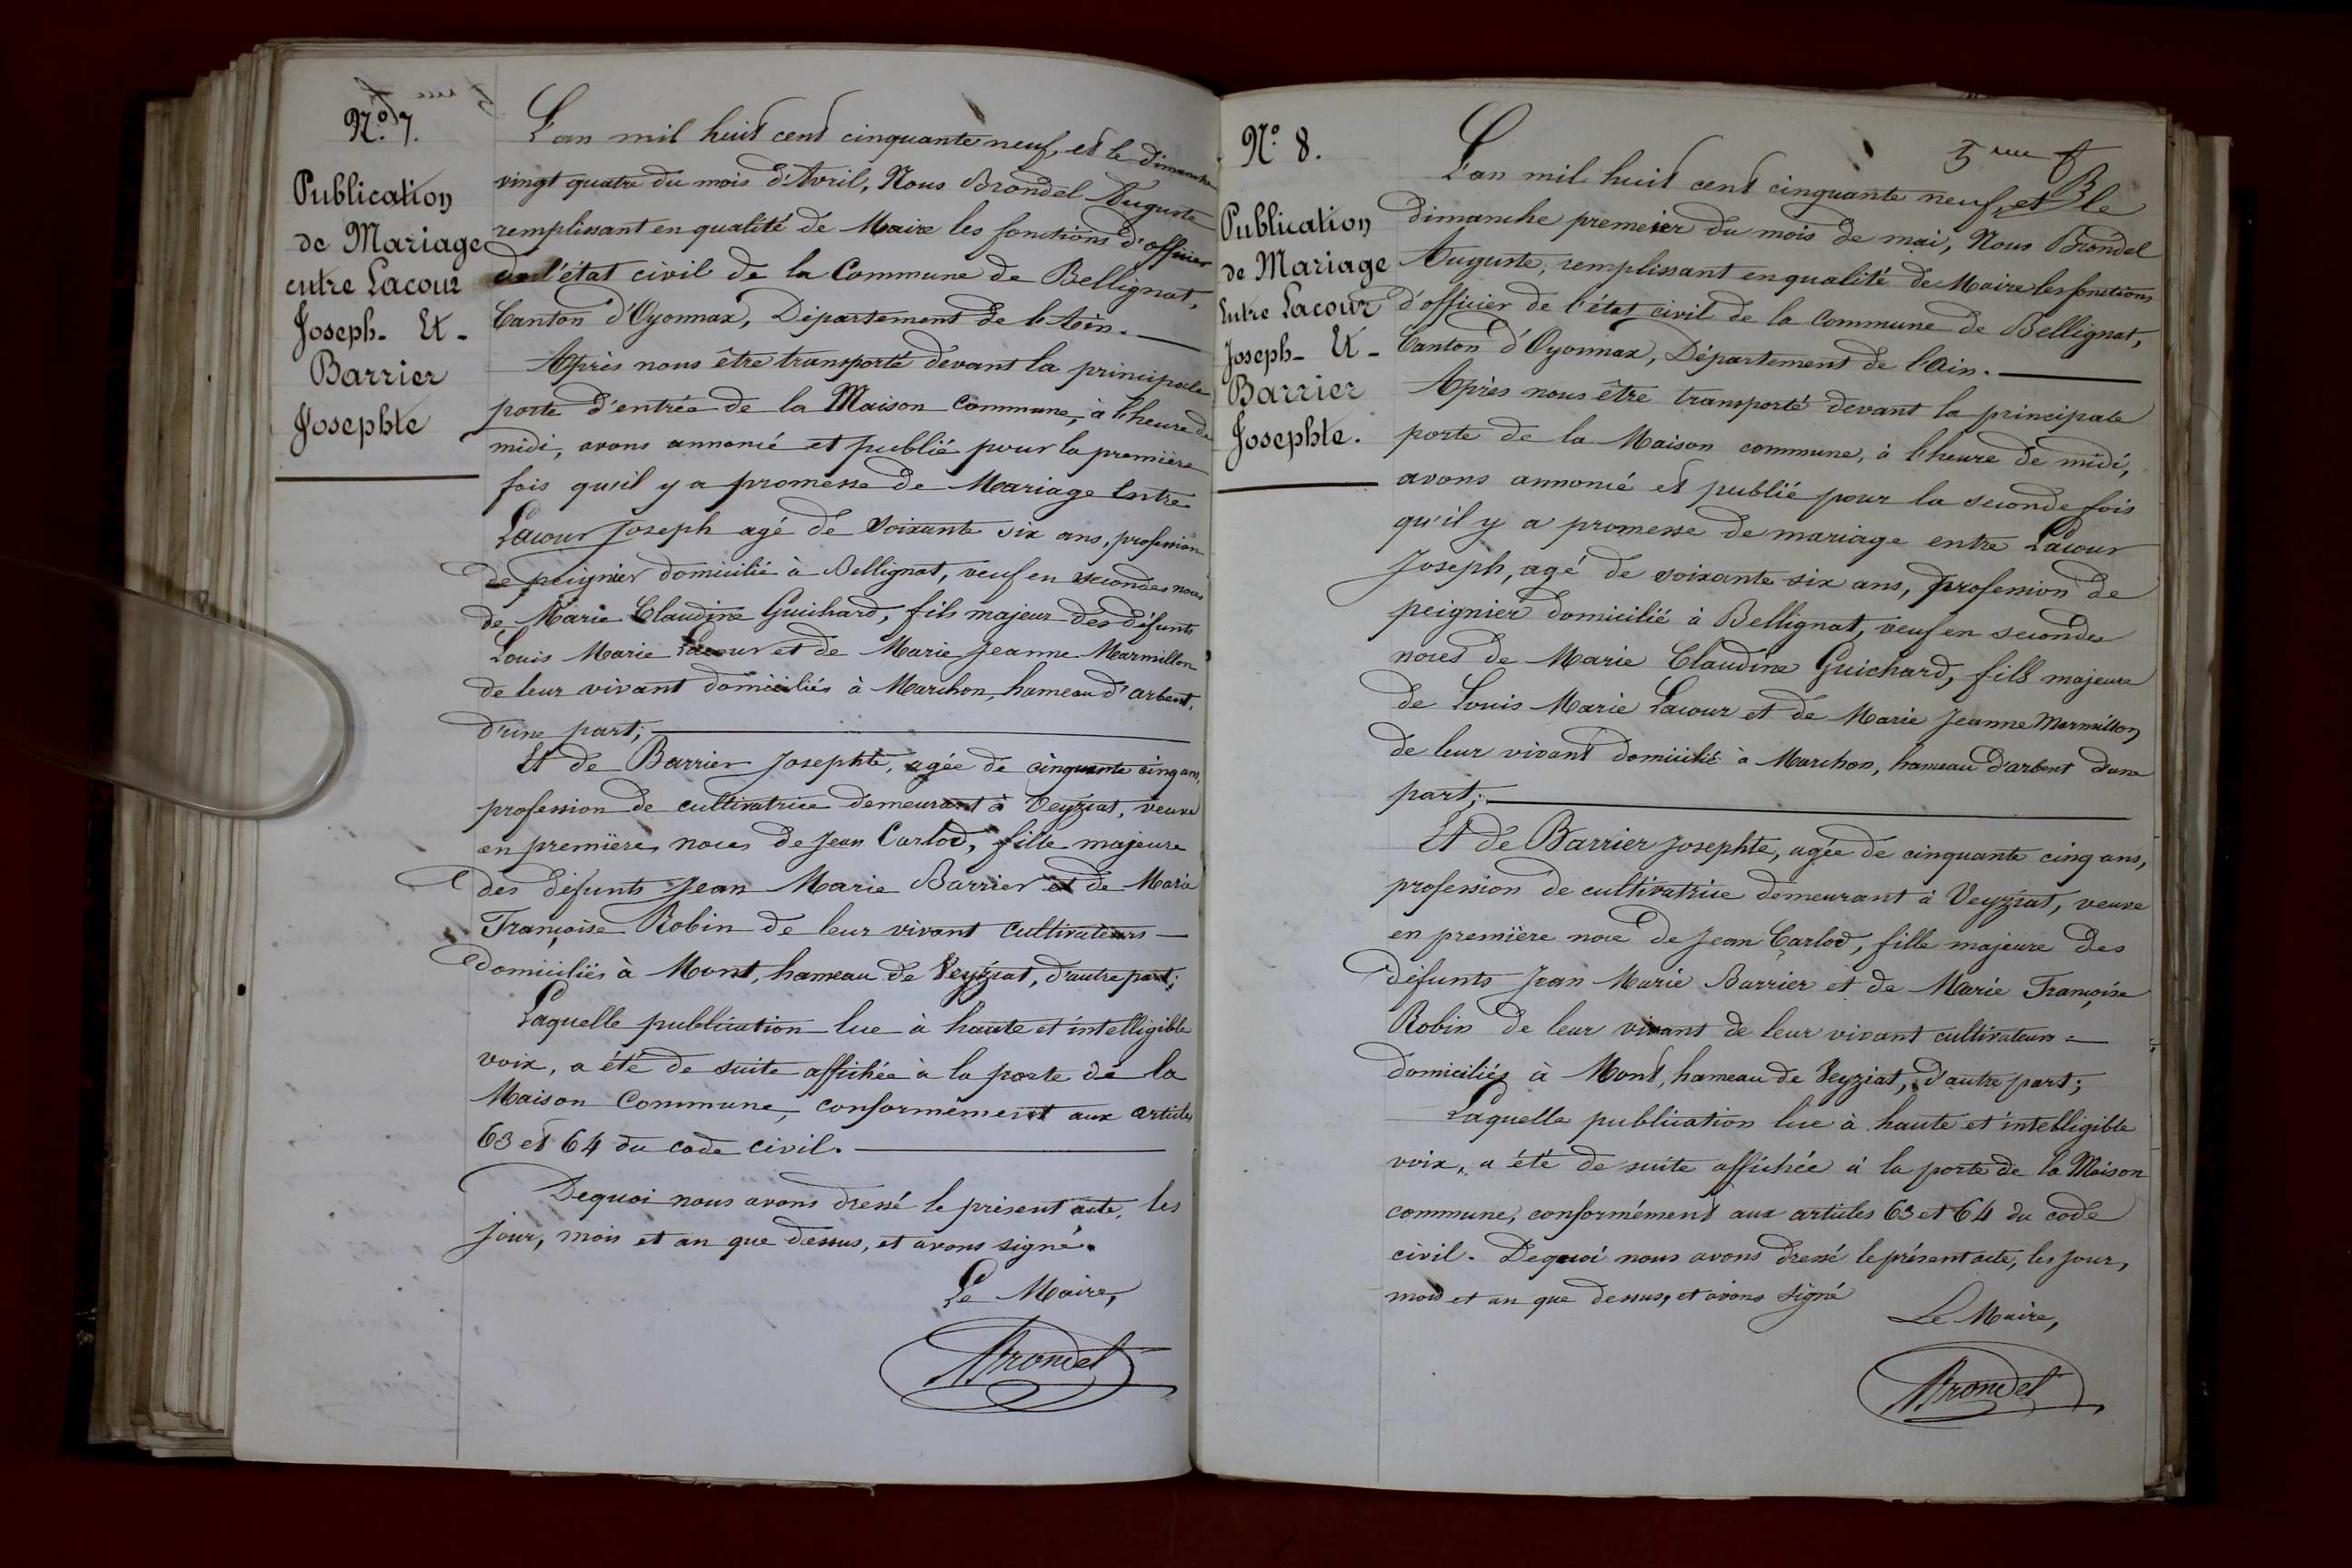 N.° 7.
Publication
de Mariage
entre Lacour
Joseph - Et -
Barrier
Josephte
L'an mil huit cent cinquante neuf, et le dimanche
vingt quatre du mois d'Avril, Nous Brondel Auguste
remplissant en qualité de Maire les fonctions d'officier
de l'état civil de la Commune de Bellignat,
Canton d'Oyonnax, Département de l'Ain.
Après nous être transporté devant la principale
porte d'entrée de la Maison Commune, à l'heure de
midi, avons annoncé et publié pour la première
fois qu'il y a promesse de Mariage Entre
Lacour Joseph agé de Soixante six ans, profession
de peignier domicilié à Bellignat, veuf en secondes noces
de Marie Claudine Guichard, fils majeur des défunts
Louis Marie Lacour et de Marie Jeanne Marmillon
de leur vivant domiciliés à Marchon, hameau d'arbent,
d'une part;
Et de Barrier Josephte, agée de cinquante cinq ans,
profession de cultivatrice demeurant à Veyziat, veuve
en premières noces de Jean Carlod, fille majeure
des défunts Jean Marie Barrier et de Marie
Françoise Robin de leur vivant Cultivateurs
domiciliés à Mont, hameau de Veyziat, d'autre part;
Laquelle publication lue à haute et intelligible
voix, a été de suite affichée à la porte de la
Maison Commune, conformément aux articles
63 et 64 du code civil.
Dequoi nous avons dressé le présent acte, les
jour, mois et an que dessus, et avons signé.
Le Maire,
ABrondel
5me f
B
N.° 8.
Publication
de Mariage
Entre Lacour
Joseph - Et -
Barrier
Josephte.
L'an mil huit cent cinquante neuf, et le
dimanche premeier du mois de mai, Nous Brondel
Auguste, remplissant en qualité de Maire les fonctions
d'officier de l'état civil de la Commune de Bellignat,
Canton d'Oyonnax, Département de l'Ain.
Après nous être transporté devant la principale
porte de la Maison commune, à l'heure de midi,
avons annoncé et publié pour la seconde fois
qu'il y a promesse de mariage entre Lacour
Joseph, agé de soixante six ans, profession de
peignier domicilié à Bellignat, veuf en secondes
noces de Marie Claudine Guichard, fils majeure
de Louis Marie Lacour et de Marie Jeanne Marmillon
de leur vivant domicilié à Marchon, hameau d'arbent d'une
part;
Et de Barrier Josephte, agée de cinquante cinq ans,
profession de cultivatrice demeurant à Veyziat, veuve
en première noce de Jean Carlod, fille majeure des
défunts Jean Marie Barrier et de Marie Françoise
Robin de leur vivant de leur vivant cultivateurs
domiciliés à Mont, hameau de Veyziat, d'autre part;
Laquelle publication lue à haute et intelligible
voix, a été de suite affichée à la porte de la Maison
commune, conformément aux articles 63 et 64 du code
civil. Dequoi nous avons dressé le présent acte, les jour,
mois et an que dessus, et avons signé
Le Maire,
ABrondel